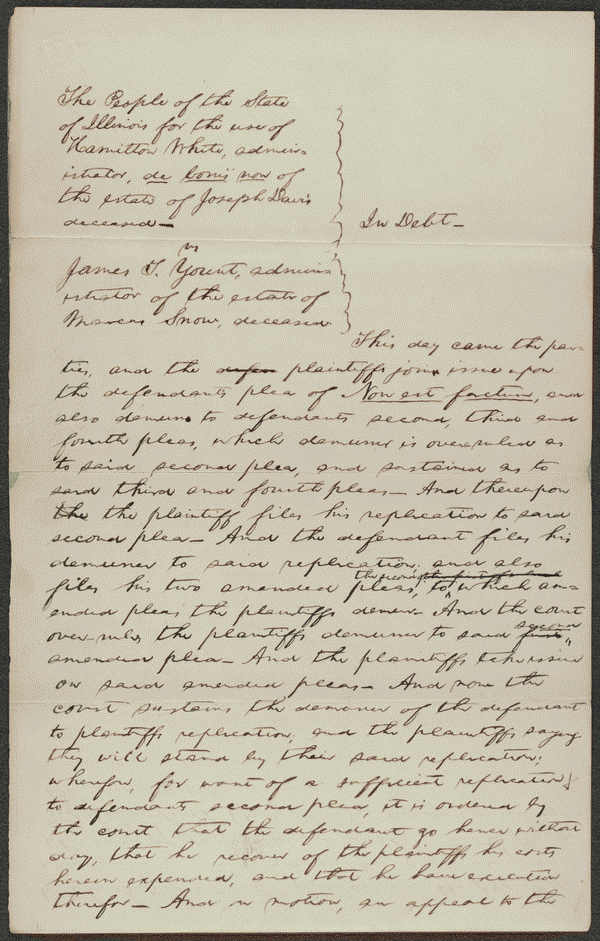 The People of the State
of Illinois for the use of
Hamilton White, admin-
istrator, de bonis non of
the estate of Joseph Davis
deceased—
In Debt—
vs
James T. Yount, admin-
istrator of the estate of
Marcus Snow, deceased.
This day came the par-
ties, and the defen plaintiffs join issue upon
the defendants plea of Non est factum, and
also demurs to defendants second, third and
fourth pleas, which demurrer is overruled as
to said second plea, and sustained as to
said third and fourth pleas— And thereupon
the the plaintiff files his replication to said
second plea— And the defendant files his
demurrer to said replication; and also
files his two amended pleas, to which am-
ended pleas the plaintiffs demur. And the court
over-rules the plaintiffs demurrer to said second
amended plea— And the plaintiffs take issue
on said amended pleas— And now the
court sustains the demurrer of the defendant
to plaintiffs replication; and the plaintiffs saying
they will stand by their said replication;
wherefor, for want of a sufficient replication
to defendants second plea, it is ordered by
the court that the defendant go hence without
day, that he recover of the plaintiffs his costs
herein expended, and that he have execution
therefor— And on motion, an appeal to the